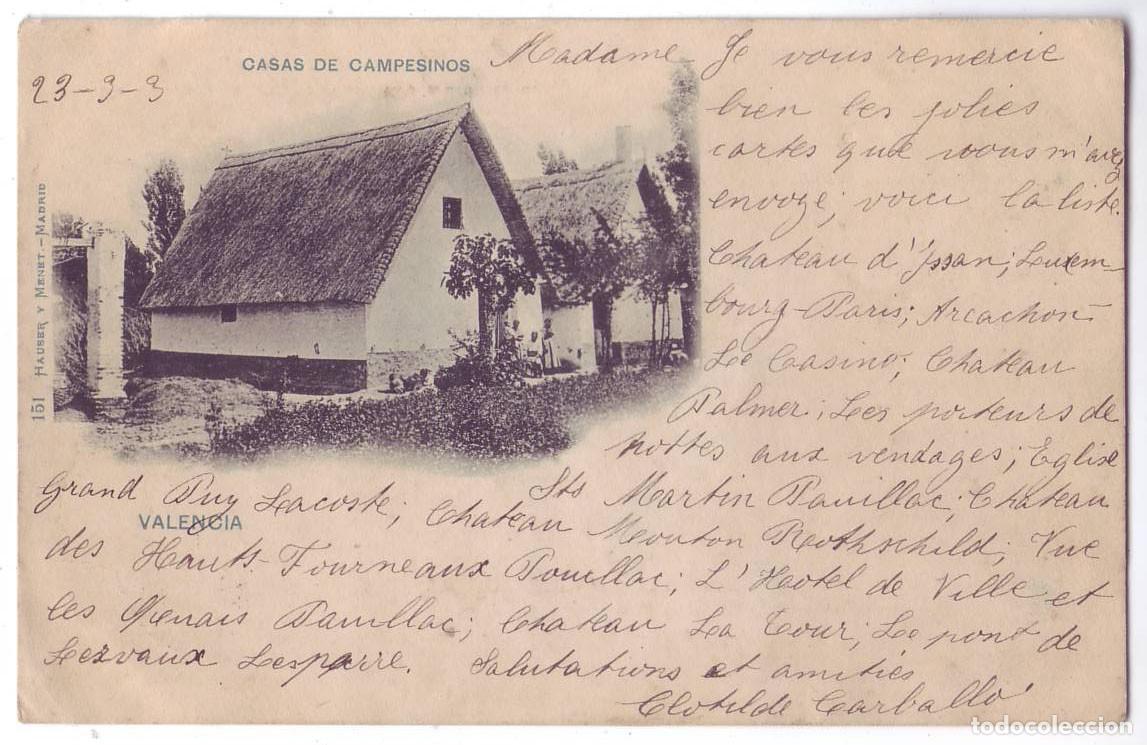 CASAS DE CAMPESINOS
23-9-3
151 HAUSER Y MENET.-MADRID
VALENCIA
Madame Je vous remercie
bien les jolies
cartes que vous m'avez
envoyé, voici la liste.
Chateau d'Issan; Luxem-
bourg-Paris; Arcachon-
Le Casino; Chateau
Palmer; Les porteurs de
hottes aux vendages; Eglise
Sts Martin Pauillac; Chateau
Grand Puy Lacoste; Chateau Mouton Rothschild; Vue
des Hauts-Fourneaux Pouillac; L'Hotel de Ville et
les Quais Pauillac; Chateau La Tour; Le pont de
Lesvaux Lesparre. Salutations et amitiés
Clotilde Carballó
todocoleccion